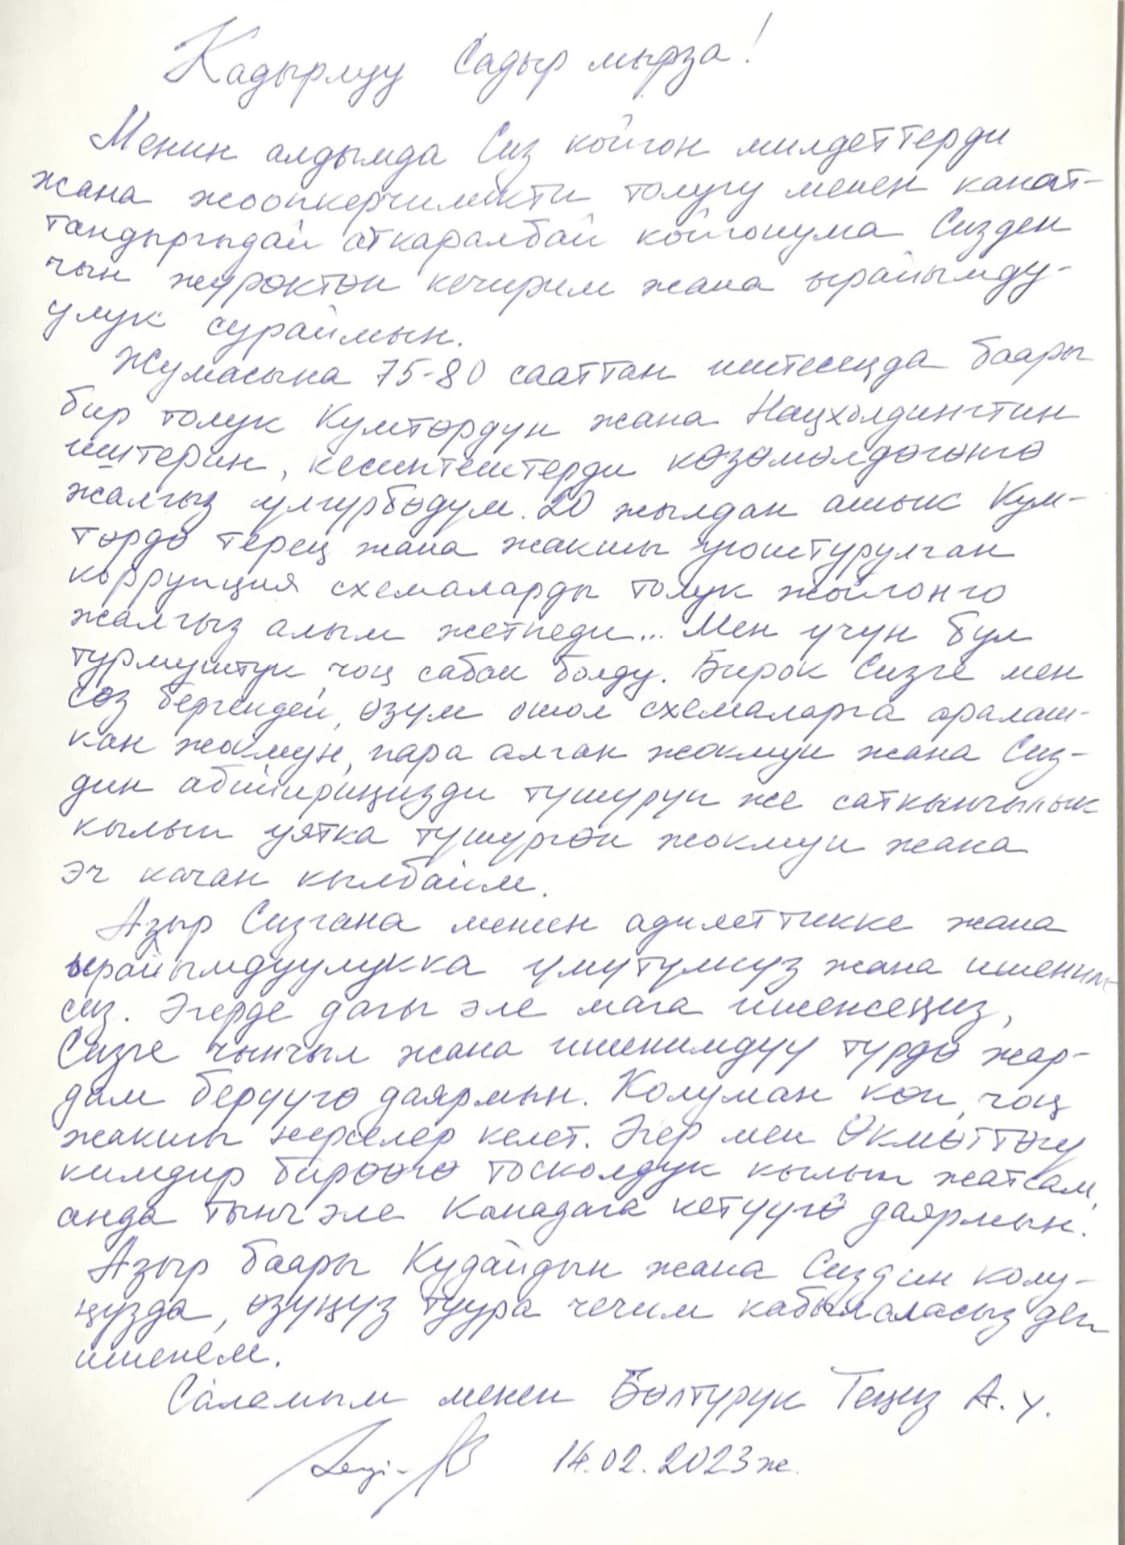 Кадырлуу Садыр мырза!
Менин алдымда Сиз койгон милдеттерди
жана жоопкерчиликти толугу менен канат-
тандыргыдай аткаралбай койгонума Сизден
чын жүрөктөн кечирим жана ырайымду-
улук сураймын.
Жумасына 75-80 сааттан иштесеңда баары
бир толук Кумтөрдүн жана Нацхолдингтин
иштерин, кесиптештерди көзөмөлдөгөнгө
жалгыз үлгүрбөдүм. 20 жылдан ашык Кум-
төрдө терең жана жакшы уюштурулган
коррупция схемаларды толук жойгонго
жалгыз алым жетпеди... Мен үчүн бул
турмуштук чоң сабак болду. Бирок Сизге мен
сөз бергендей, өзүм ошол схемаларга аралаш-
кан жокмун, пара алган жокмун жана Сиз-
дин абийириңизди түшүрүп же саткынчылык
кылып уятка түшүргөн жокмун жана
эч качан кылбайм.
Азыр Сизгана менен адилеттикке жана
ырайымдуулукка үмүтүмүз жана ишеним-
сиз. Эгерде дагы эле мага ишенсеңиз,
Сизге чынчыл жана ишенимдүү түрдө жар-
дам берүүгө даярмын. Колуман көп, чоң
жакшы нерселер келет. Эгер мен Өкмөттөгү
кимдир бирөөгө тосколдук кылып жатсам,
анда тынч эле Канадага кетүүгө даярмын.
Азыр баары Кудайдын жана Сиздин колу-
ңузда, өзүңүз туура чечим кабыл аласыз деп
ишенем.
Саламым менен Бөлтүрүк Теңиз А. у.
14.02.2023 ж.